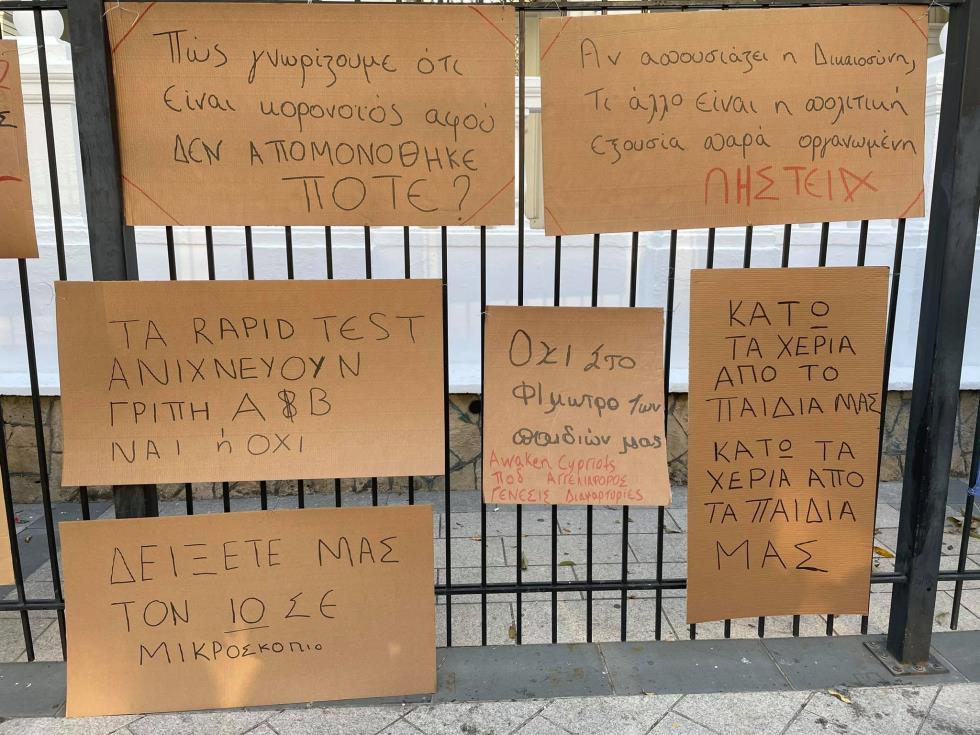 Πώς γνωρίζουμε ότι
είναι κορονοϊός αφού
ΔΕΝ ΑΠΟΜΟΝΟΘΗΚΕ
ΠΟΤΕ?
Αν απουσιάζει η Δικαιοσύνη,
Τι άλλο είναι η πολιτική
εξουσία παρά οργανωμένη
ΛΗΣΤΕΙΑ
ΤΑ RAPID TEST
ΑΝΙΧΝΕΥΟΥΝ
ΓΡΙΠΗ Α & Β
ΝΑΙ ή ΟΧΙ
Οχι στο
Φίμωτρο των
παιδιών μας
Awaken Cypriots
ΠΟΔ ΑΓΓΕΛΙΑΦΟΡΟΣ
ΓΕΝΕΣΙΣ Διαμαρτορίες
ΚΑΤΩ
ΤΑ ΧΕΡΙΑ
ΑΠΟ ΤΟ
ΠΑΙΔΙΑ ΜΑΣ
ΚΑΤΩ ΤΑ
ΧΕΡΙΑ ΑΠΟ
ΤΑ ΠΑΙΔΙΑ
ΜΑΣ
ΔΕΙΞΕΤΕ ΜΑΣ
ΤΟΝ ΙΟ ΣΕ
ΜΙΚΡΟΣΚΟΠΙΟ